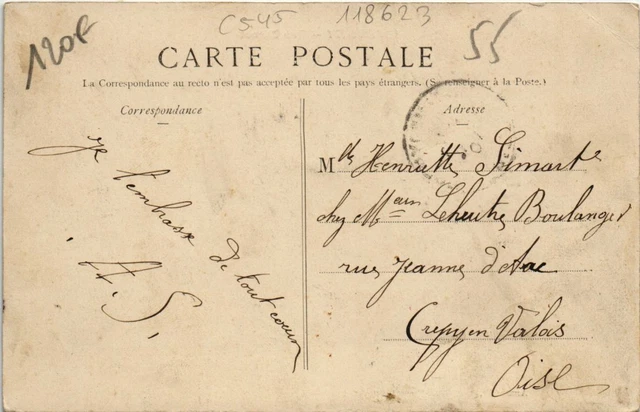 120F
C545
118623
55
CARTE POSTALE
La Correspondance au recto n'est pas acceptée par tous les pays étrangers. (Se renseigner à la Poste.)
Correspondance
Adresse
Je t'embrasse de tout coeur
A. S.
Mlle Henriette Simart
chez Mme Leheutre Boulanger
rue Jeanne d'Arc
Crepy en Valois
Oise